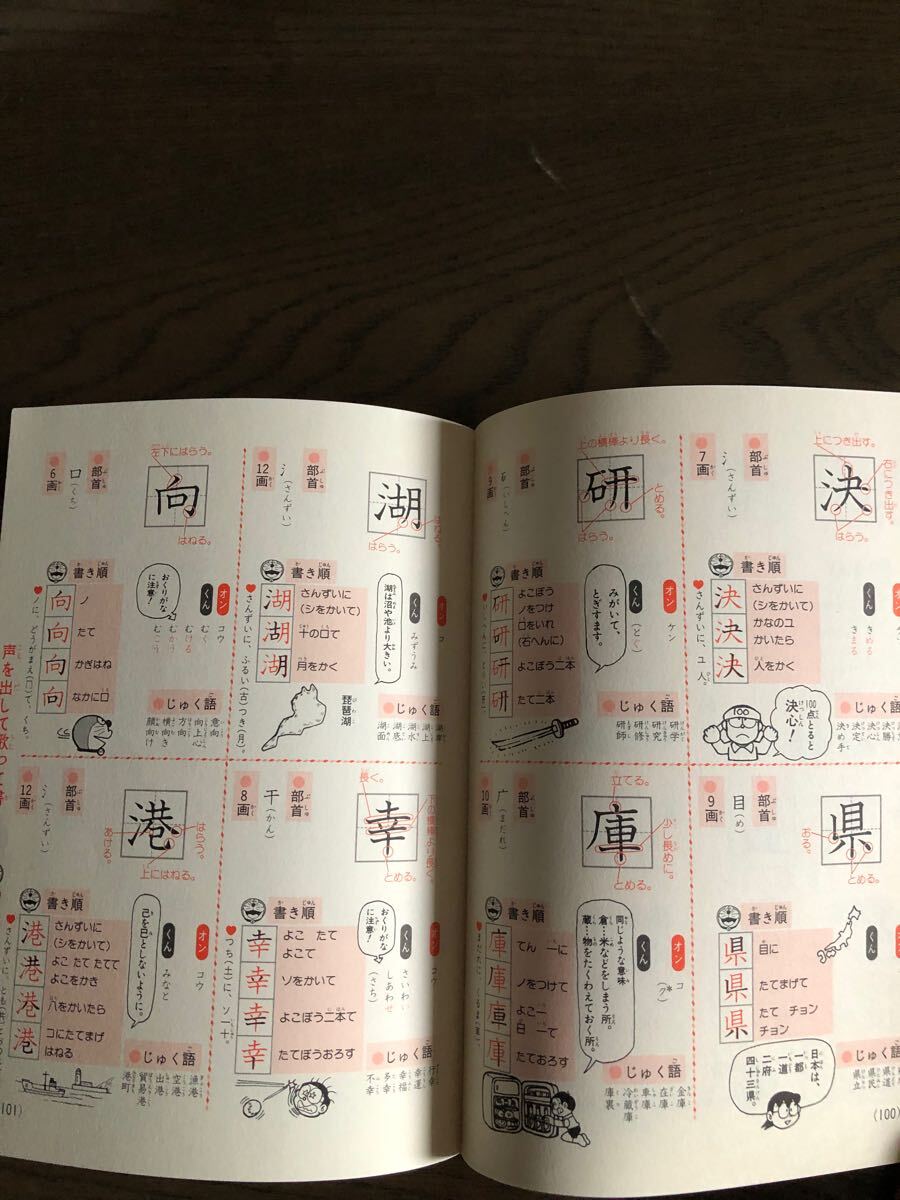 決
上につき出す。
右につき出す。
はらう。
部首
氵(さんずい)
7画
書き順
決
決
決
さんずいに
(シをかいて)
かなのユ
かいたら
人をかく
♥さんずいに、ユ人。
きめる
きまる
じゅく語
決勝
決心
決定
決め手
100点とると決心!
研
上の横棒より長く。
とめる。
はらう。
部首
石(いしへん)
9画
書き順
研
研
研
研
よこぼう
ノをつけ
口をいれ
(石へんに)
よこぼう二本
たて二本
オン
ケン
くん
(とぐ)
みがいて、
とぎすます。
じゅく語
研学
研究
研修
研師
県
おる。
とめる。
部首
目(め)
9画
書き順
県
県
県
目に
たてまげて
たて チョン
チョン
じゅく語
県道
県民
県立
日本は、
一都
一道
二府
四十三県。
庫
立てる。
少し長めに。
とめる。
部首
广(まだれ)
10画
書き順
庫
庫
庫
庫
てん 一に
ノをつけて
よこ一
白 一て
たておろす
オン
コ
(ク*)
くん
同じような意味
倉…米などをしまう所。
蔵…物をたくわえておく所。
じゅく語
金庫
在庫
車庫
冷蔵庫
庫裏
(100)
湖
はねる。
はらう。
部首
氵(さんずい)
12画
書き順
湖
湖
湖
さんずいに
(シをかいて)
十の口て
月をかく
♥さんずいに、ふるい(古)つき(月)。
オン
コ
くん
みずうみ
湖は沼や池より大きい。
琵琶湖
じゅく語
湖上
湖水
湖底
湖面
向
左下にはらう。
はねる。
部首
口(くち)
6画
書き順
向
向
向
向
ノ
たて
かぎはね
なかに口
オン
コウ
くん
むく
むける
むかう
むこう
おくりがなに注意!
じゅく語
意向
向上心
方向
横向き
顔向け
幸
長く。
とめる。
部首
干(かん)
8画
書き順
幸
幸
幸
幸
よこ たて
よこて
ソをかいて
よこぼう二本て
たてぼうおろす
♥つち(土)に、ソ一十。
オン
コウ
くん
さいわい
しあわせ
(さち)
おくりがなに注意!
じゅく語
幸運
幸福
多幸
不幸
港
はらう。
あける。
上にはねる。
部首
氵(さんずい)
12画
書き順
港
港
港
港
さんずいに
(シをかいて)
よこ たて たてて
よこをかき
八をかいたら
コにたてまげ
はねる
オン
コウ
くん
みなと
己を巳としないように。
じゅく語
漁港
空港
出港
貿易港
港町
(101)